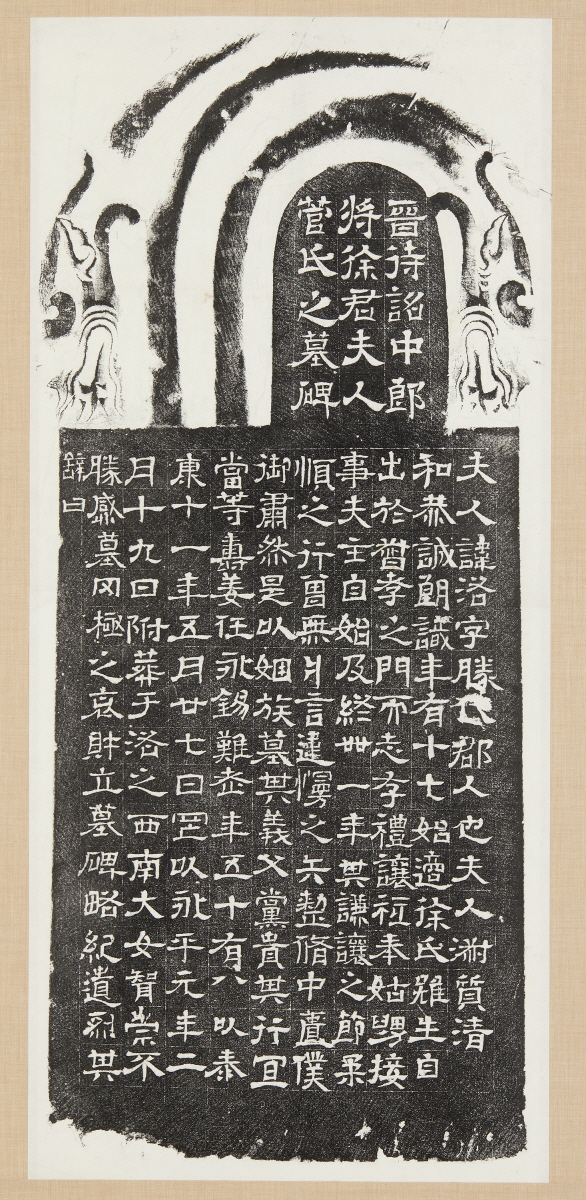 晉待詔中郎
將徐君夫人
菅氏之墓碑
夫人諱洛字勝代郡人也夫人淑質清
和恭誠朗識年有十七始適徐氏雖生自
出於督孝之門而志存禮讓祗奉姑舅接
事夫主自始及終卌一年其謙讓之節柔
順之行曾無片言違慢之矣整脩中匱僕
御肅然是以姻族墓其義父黨貴其行宜
當等壽姜任永錫難老年五十有八以泰
康十一年五月廿七日罡以永平元年二
月十九日附葬于洛之西南大女智崇不
勝感墓罔極之哀財立墓碑略紀遺烈其
辭曰